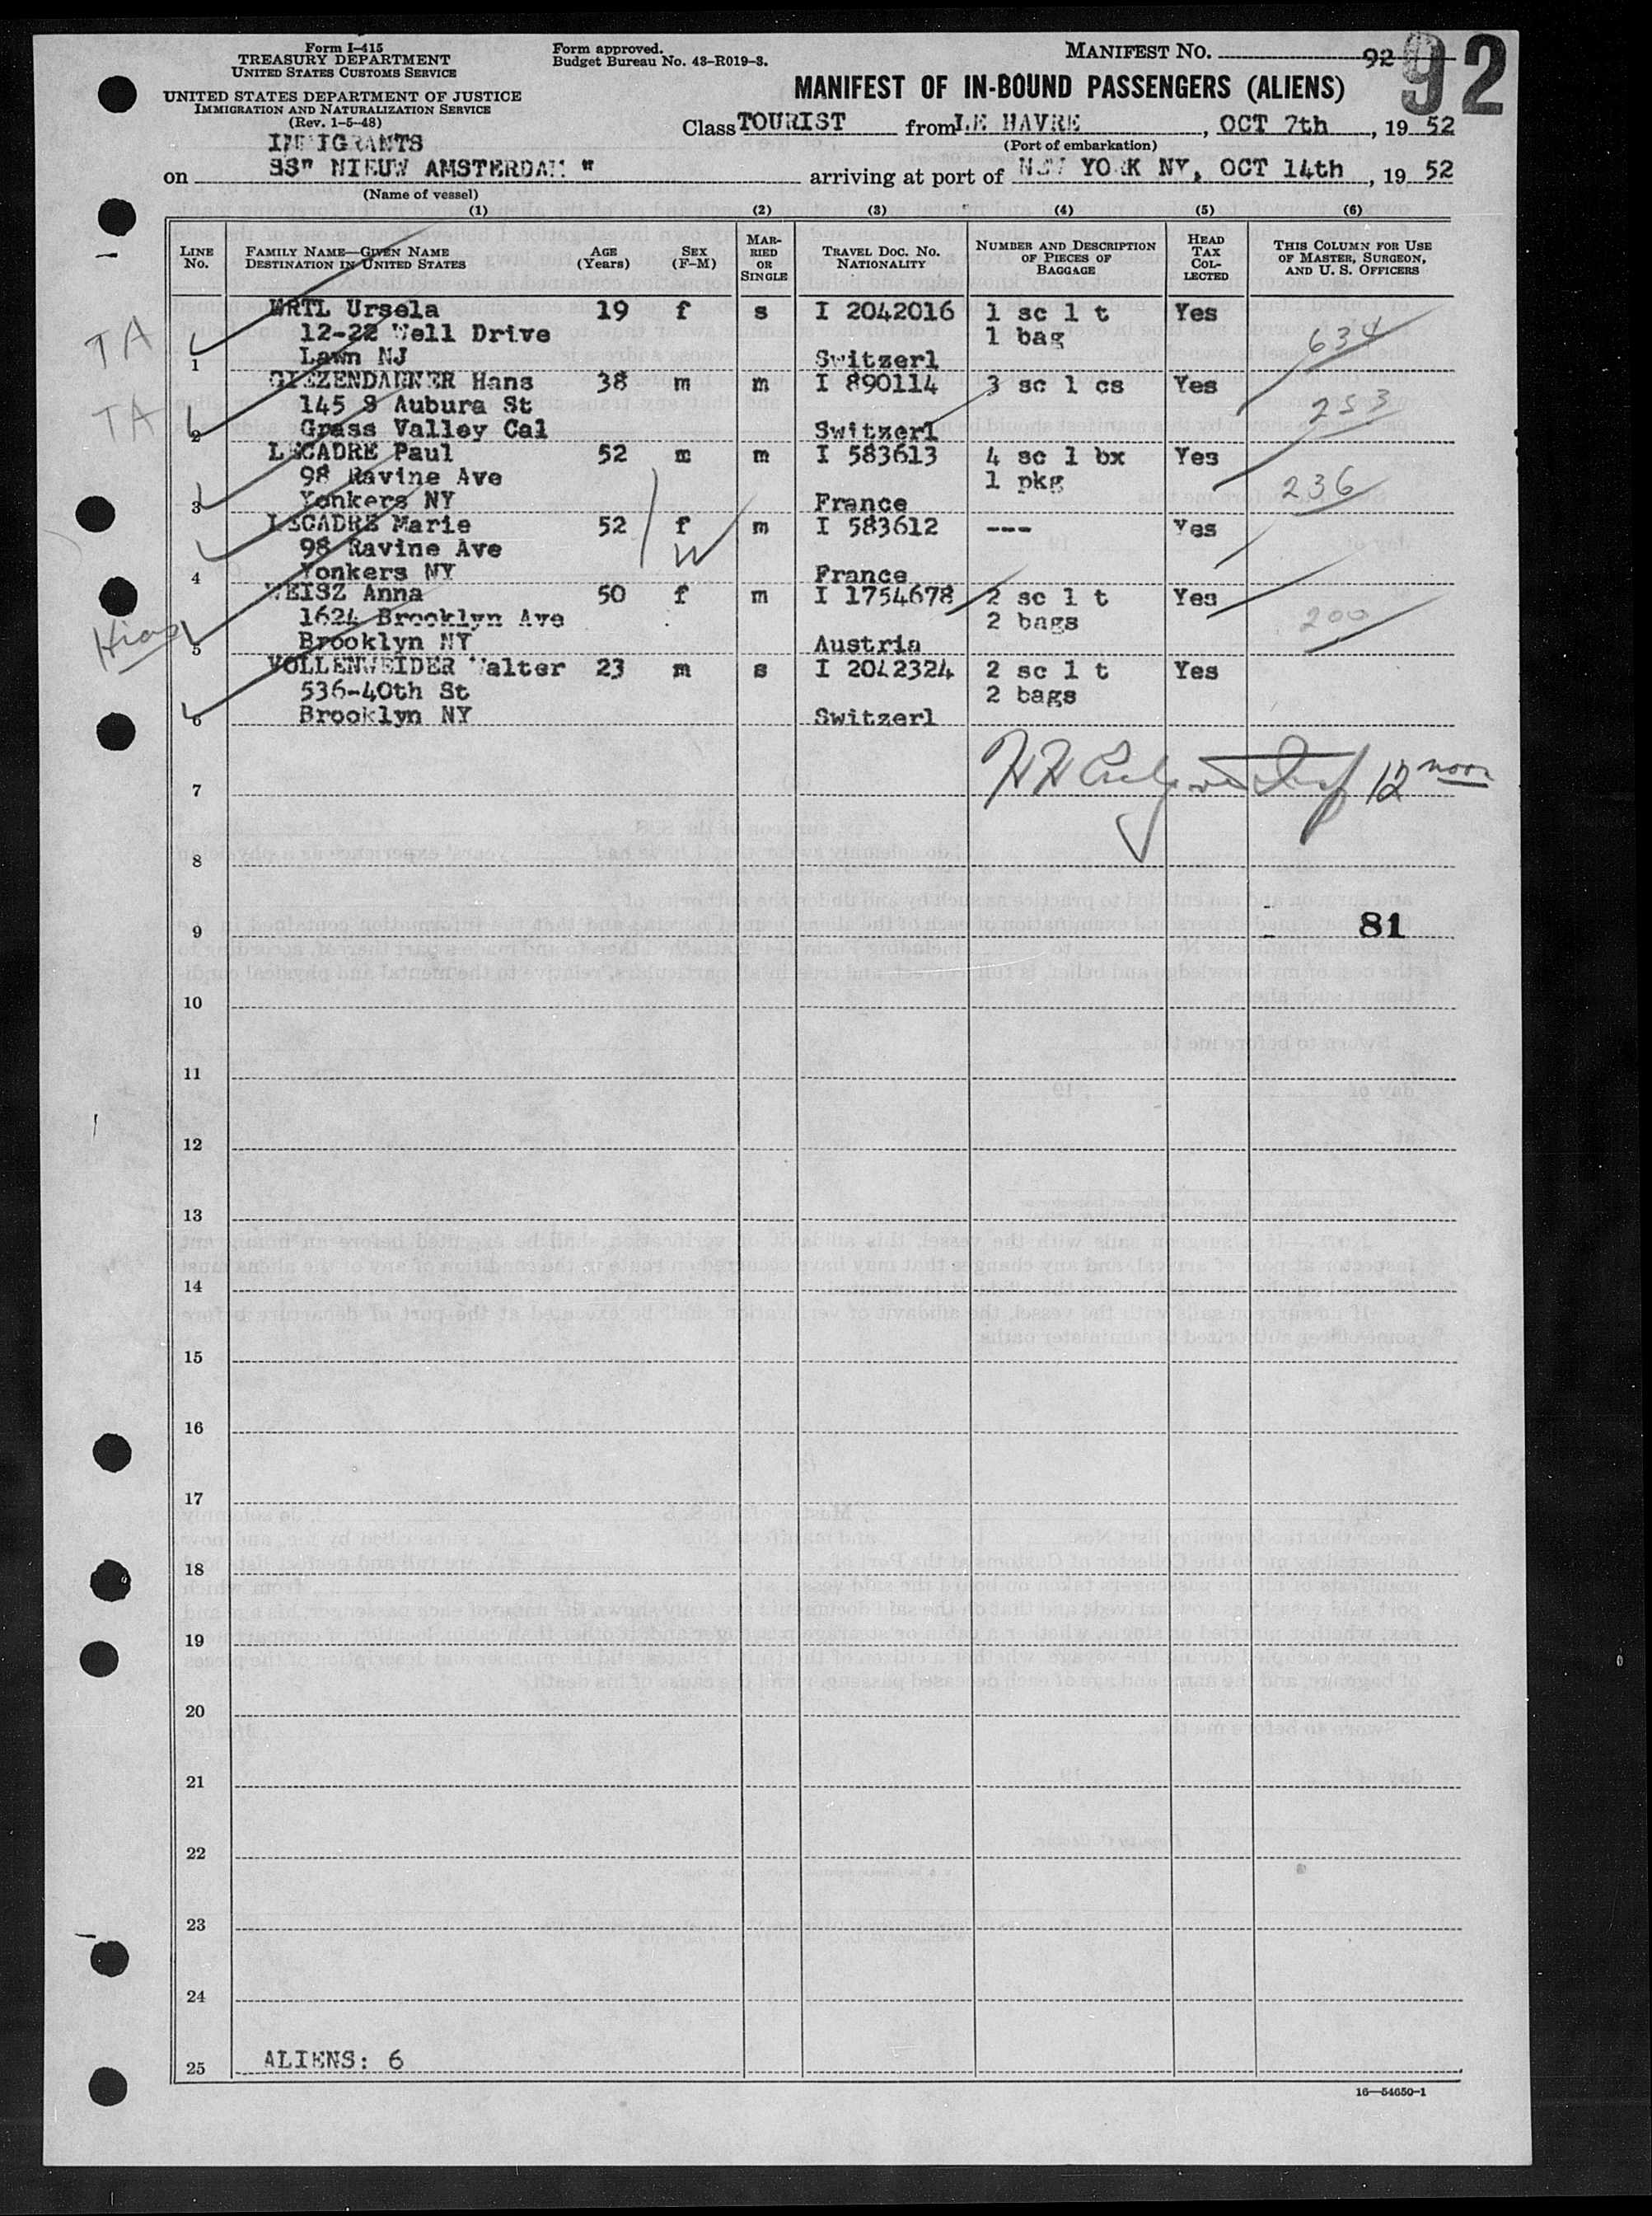 Form I-415
TREASURY DEPARTMENT
UNITED STATES CUSTOMS SERVICE
UNITED STATES DEPARTMENT OF JUSTICE
IMMIGRATION AND NATURALIZATION SERVICE
(Rev. 1-5-48)
Form approved.
Budget Bureau No. 43-R019-3.
MANIFEST No. 92
92
MANIFEST OF IN-BOUND PASSENGERS (ALIENS)
Class TOURIST from LE HAVRE, OCT 7th, 19 52
(Port of embarkation)
IMMIGRANTS
on SS" NIEUW AMSTERDAM " arriving at port of NEW YORK NY, OCT 14th, 19 52
(Name of vessel)
(1) (2) (3) (4) (5) (6)
LINE No. FAMILY NAME—GIVEN NAME DESTINATION IN UNITED STATES AGE (Years) SEX (F-M) MARRIED OR SINGLE TRAVEL DOC. NO. NATIONALITY NUMBER AND DESCRIPTION OF PIECES OF BAGGAGE HEAD TAX COLLECTED THIS COLUMN FOR USE OF MASTER, SURGEON, AND U. S. OFFICERS
ERTL Ursela 19 f s I 2042016 1 sc 1 t Yes
TA 12-22 Well Drive 1 bag 634
1 Lawn NJ Switzerl
GIEZENDANNER Hans 38 m m I 890114 3 sc 1 cs Yes
TA 145 S Auburn St 253
2 Grass Valley Cal Switzerl
LECADRE Paul 52 m m I 583613 4 sc 1 bx Yes
98 Ravine Ave 1 pkg 236
3 Yonkers NY France
LECADRE Marie 52 f m I 583612 --- Yes
98 Ravine Ave W
4 Yonkers NY France
WEISZ Anna 50 f m I 1754678 2 sc 1 t Yes
Hias 1624 Brooklyn Ave 2 bags 200
5 Brooklyn NY Austria
VOLLENWEIDER Walter 23 m s I 2042324 2 sc 1 t Yes
536-40th St 2 bags
6 Brooklyn NY Switzerl
12 noon
7
8
9 81
10
11
12
13
14
15
16
17
18
19
20
21
22
23
24
25 ALIENS: 6
16—54650-1